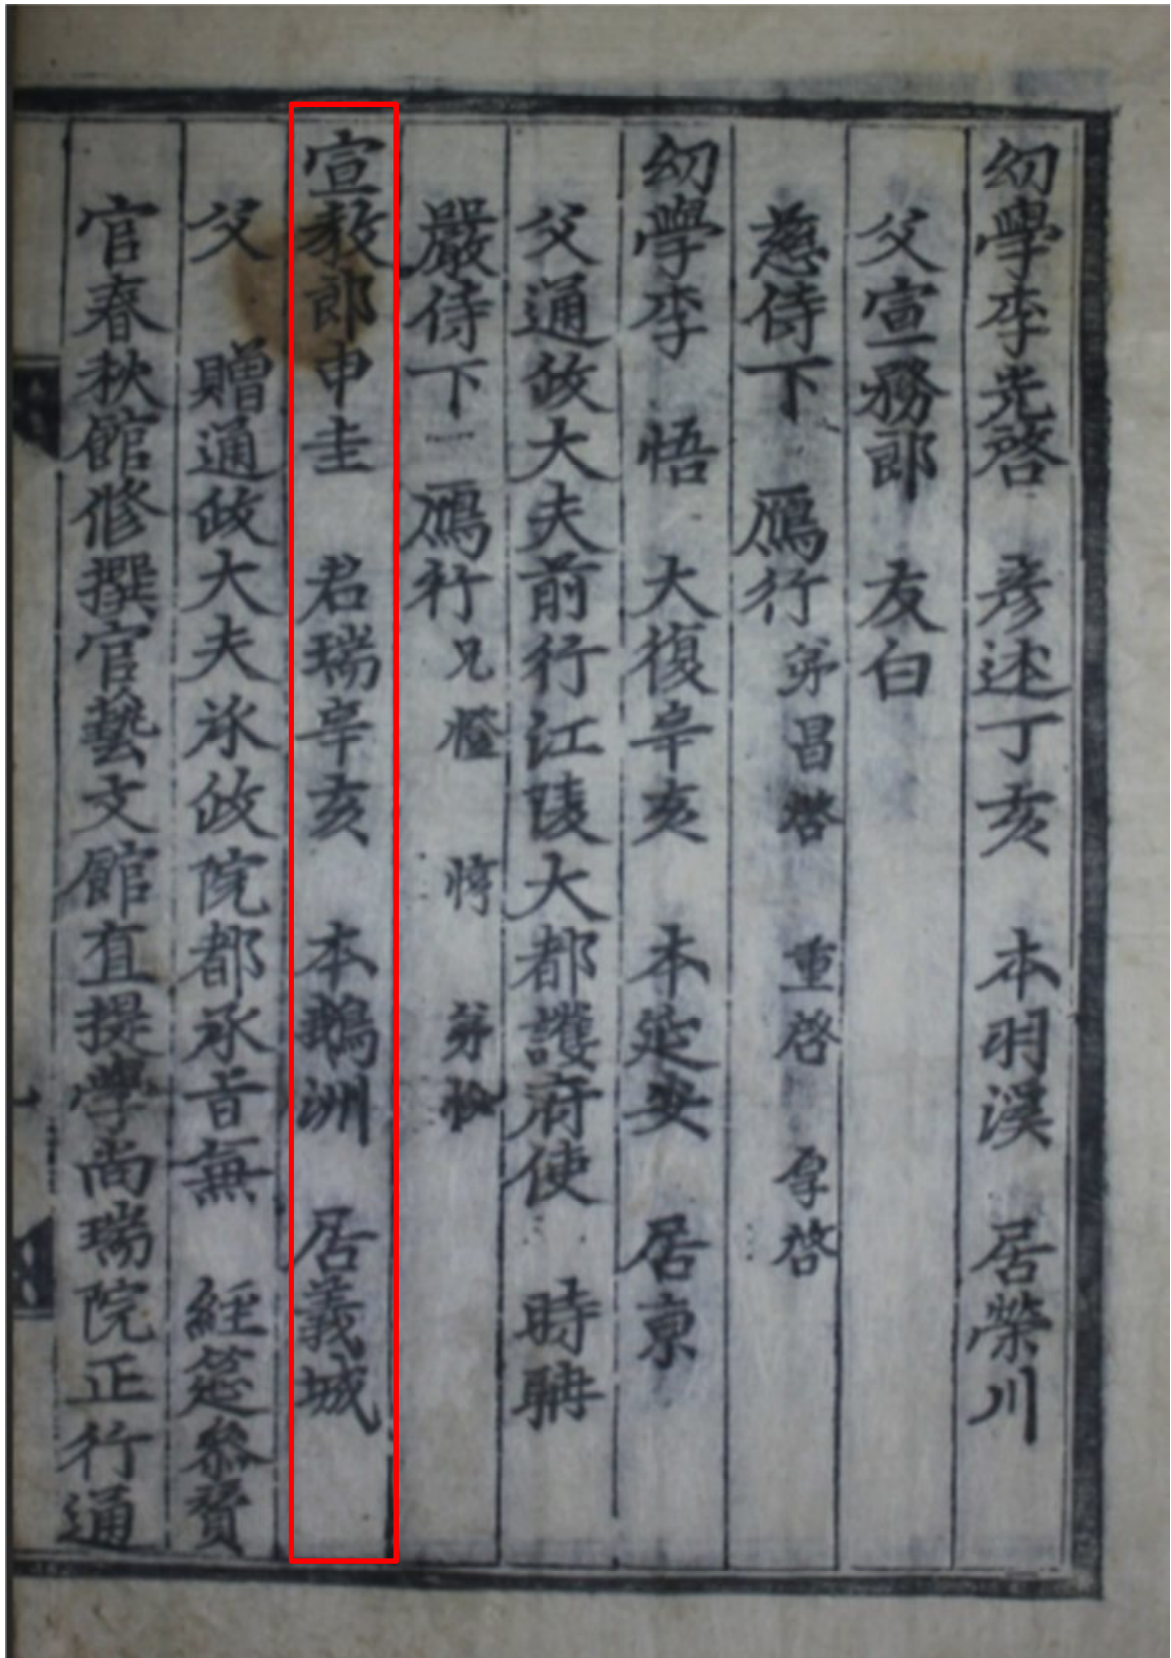 幼學李光啓 彦述丁亥 本羽溪 居榮川
父宣務郎 友白
慈侍下 鴈行 弟昌啓 重啓 厚啓
幼學李 悟 大復辛亥 本延安 居京
父通政大夫前行江陵大都護府使 時聃
嚴侍下 鴈行 兄 弟
宣敎郎申圭 君瑞辛亥 本鵝洲 居義城
父 贈通政大夫承政院都承旨兼 經筵叅贊
官春秋館修撰官藝文館直提學尚瑞院正行通